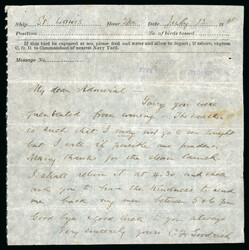 Ship, St. Louis Hour, Date, July 12
Position No. of birds tossed
If this bird be captured at sea, please feed and water and allow to depart; if ashore, register
C. & D. to Commandant of nearest Navy Yard.
Message No.
My dear Admiral
Sorry you were
prevented from coming. The weather
is such that I may not go to sea tonight
but wait if possible
Many thanks for the steam launch
I shall return it at 4.30 and
ask you to have the kindness to send
me back my men between 5 & 6 pm
Good bye & good luck to you always
Very sincerely yours C F Goodrich